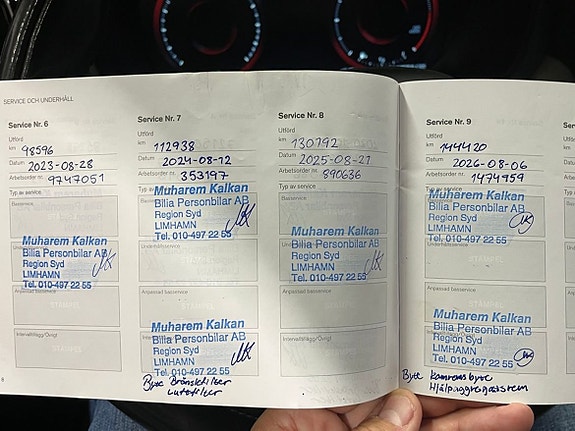 SERVICE OCH UNDERHÅLL
Service Nr. 6
Utförd
km 98596
Datum 2023-08-28
Arbetsorder nr. 9747051
Typ av service
Basservice
Muharem Kalkan
Bilia Personbilar AB
Region Syd
LIMHAMN
Tel. 010-497 22 55
Anpassad basservice
Intervalltillägg/Övrigt
8
Service Nr. 7
Utförd
km 112938
Datum 2024-08-12
Arbetsorder nr. 353197
Typ av service
Muharem Kalkan
Bilia Personbilar AB
Region Syd
LIMHAMN
Tel. 010-497 22 55
Underhållsservice
Anpassad basservice
Muharem Kalkan
Bilia Personbilar AB
Region Syd
LIMHAMN
Tel. 010-497 22 55
Byte Bränslefilter
Luftfilter
Service Nr. 8
Utförd
km 130792
Datum 2025-08-21
Arbetsorder nr. 890636
Typ av service
Basservice
Muharem Kalkan
Bilia Personbilar AB
Region Syd
LIMHAMN
Tel. 010-497 22 55
Anpassad basservice
Intervalltillägg/Övrigt
Service Nr. 9
Utförd
km 144420
Datum 2026-08-06
Arbetsorder nr. 1474959
Typ av service
Muharem Kalkan
Bilia Personbilar AB
Region Syd
LIMHAMN
Tel. 010-497 22 55
Underhållsservice
Anpassad basservice
Muharem Kalkan
Bilia Personbilar AB
Region Syd
LIMHAMN
Tel. 010-497 22 55
Byte Kamremsbyte
Hjälpaggregatsrem